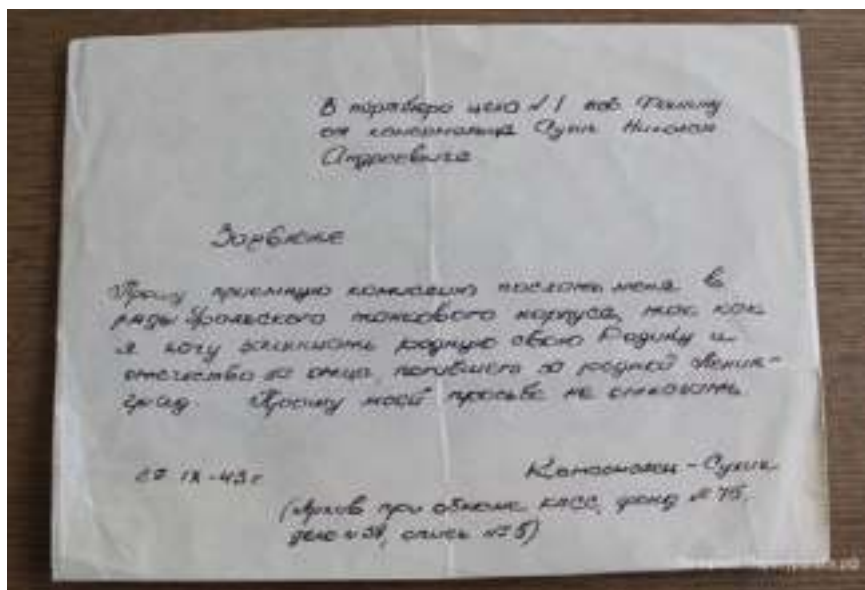 В партбюро цеха №1 тов.
от комсомольца Сухих Николая
Андреевича
Заявление
Прошу приемную комиссию послать меня в
ряды Уральского танкового корпуса, так как
я хочу защищать родную свою Родину и
отечество за отца, погибшего за родной Ленин-
град. Прошу моей просьбе не отказать.
IX-43 г.
Комсомолец - Сухих
(Архив при обкоме КПСС, фонд № 75,
дело № , опись № 5)